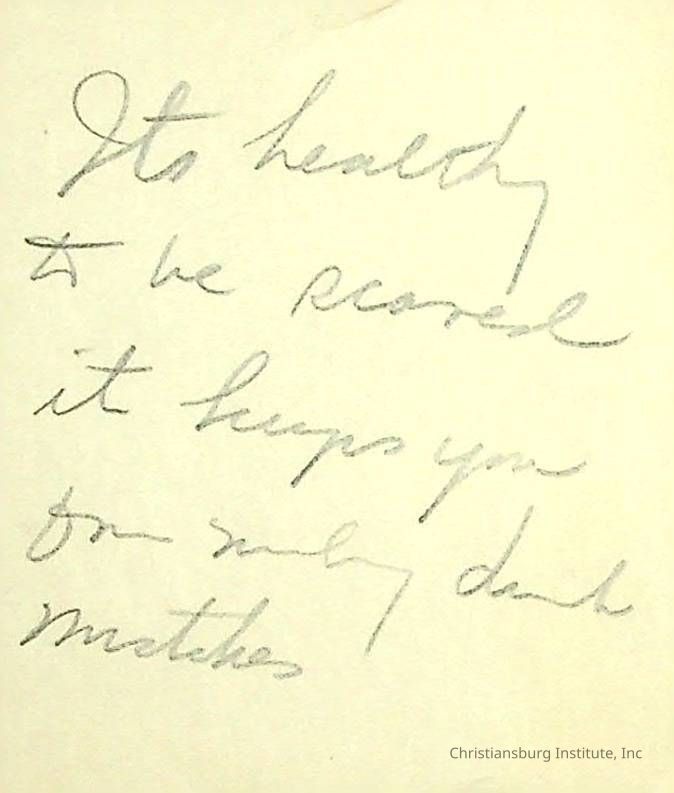 Its healthy
to be scared
it keeps you
from making dumb
mistakes
Christiansburg Institute, Inc